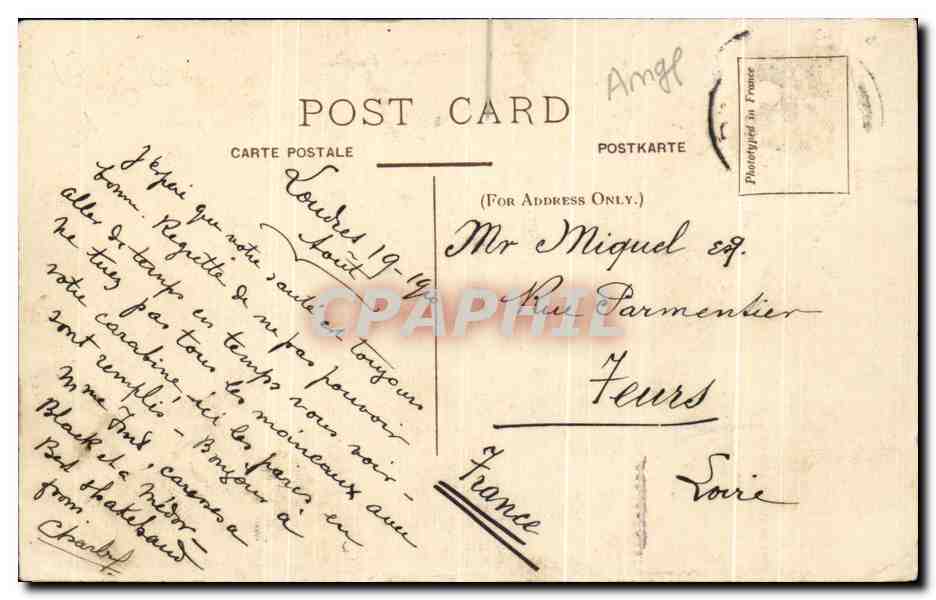 Angl
POST CARD
Phototyped in France
CARTE POSTALE
POSTKARTE
(FOR ADDRESS ONLY.)
Londres 19-
Août
J'espère que votre santé est toujours
bonne. Regrette de ne pas pouvoir
aller de temps en temps vous voir -
Ne tuez pas tous les moineaux avec
votre carabine, ici les parcs en
sont remplis - Bonjour à
Mme caresses à
Black et à Médor -
Best shakehand
from
Mr Miquel
Rue Parmentier
Feurs
Loire
France
CPAPHIL